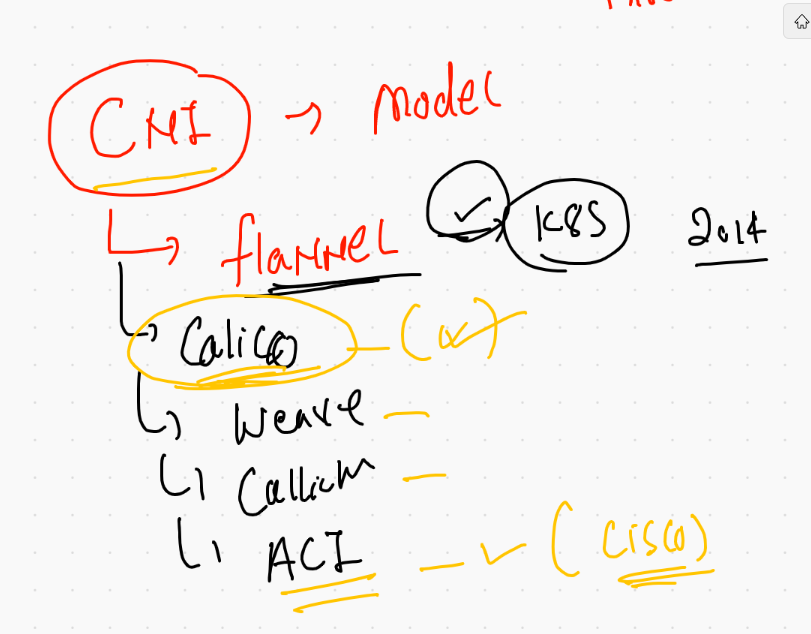 CNI → Model
flannel ✓ K8S 2014
Calico - (✓)
Weave -
Callium -
ACI - ✓ (Cisco)